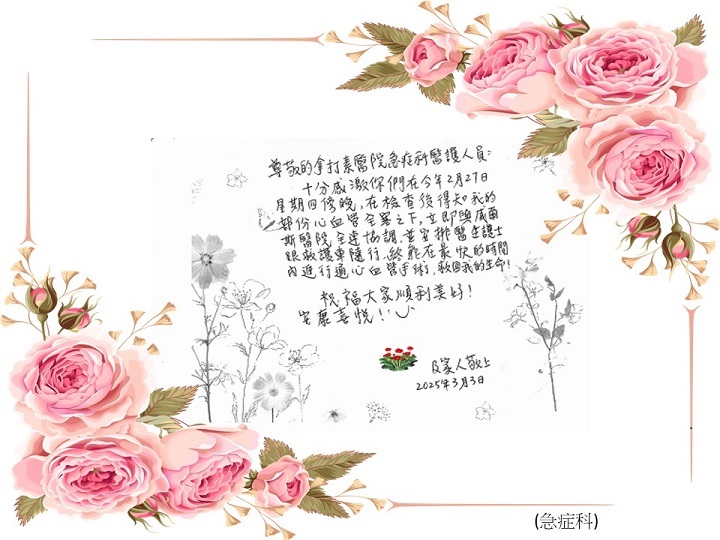 尊敬的拿打素醫院急症科醫護人員：
十分感激你們在今年2月27日
星期四傍晚，在檢查後得知我的
部份心血管全塞之下，立即與威爾
斯醫院全速協調，並安排醫生護士
跟救護車隨行，終能在最快的時間
內進行通心血管手術，救回我的生命！
祝福大家順利美好！
安康喜悅！
及家人敬上
2025年3月3日
(急症科)